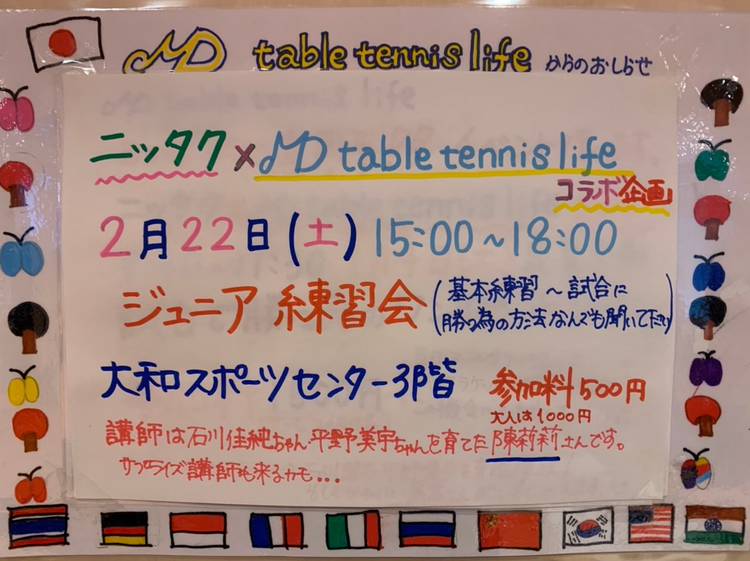 MD table tennis life からのおしらせ
ニッタク×MD table tennis life
コラボ企画
2月22日(土) 15:00~18:00
ジュニア練習会(基本練習~試合に
勝つ為の方法なんでも聞いて下さい)
大和スポーツセンター3階 参加料500円
大人は1000円
講師は石川佳純ちゃん平野美宇ちゃんを育てた陳莉莉さんです。
サプライズ講師も来るカモ...